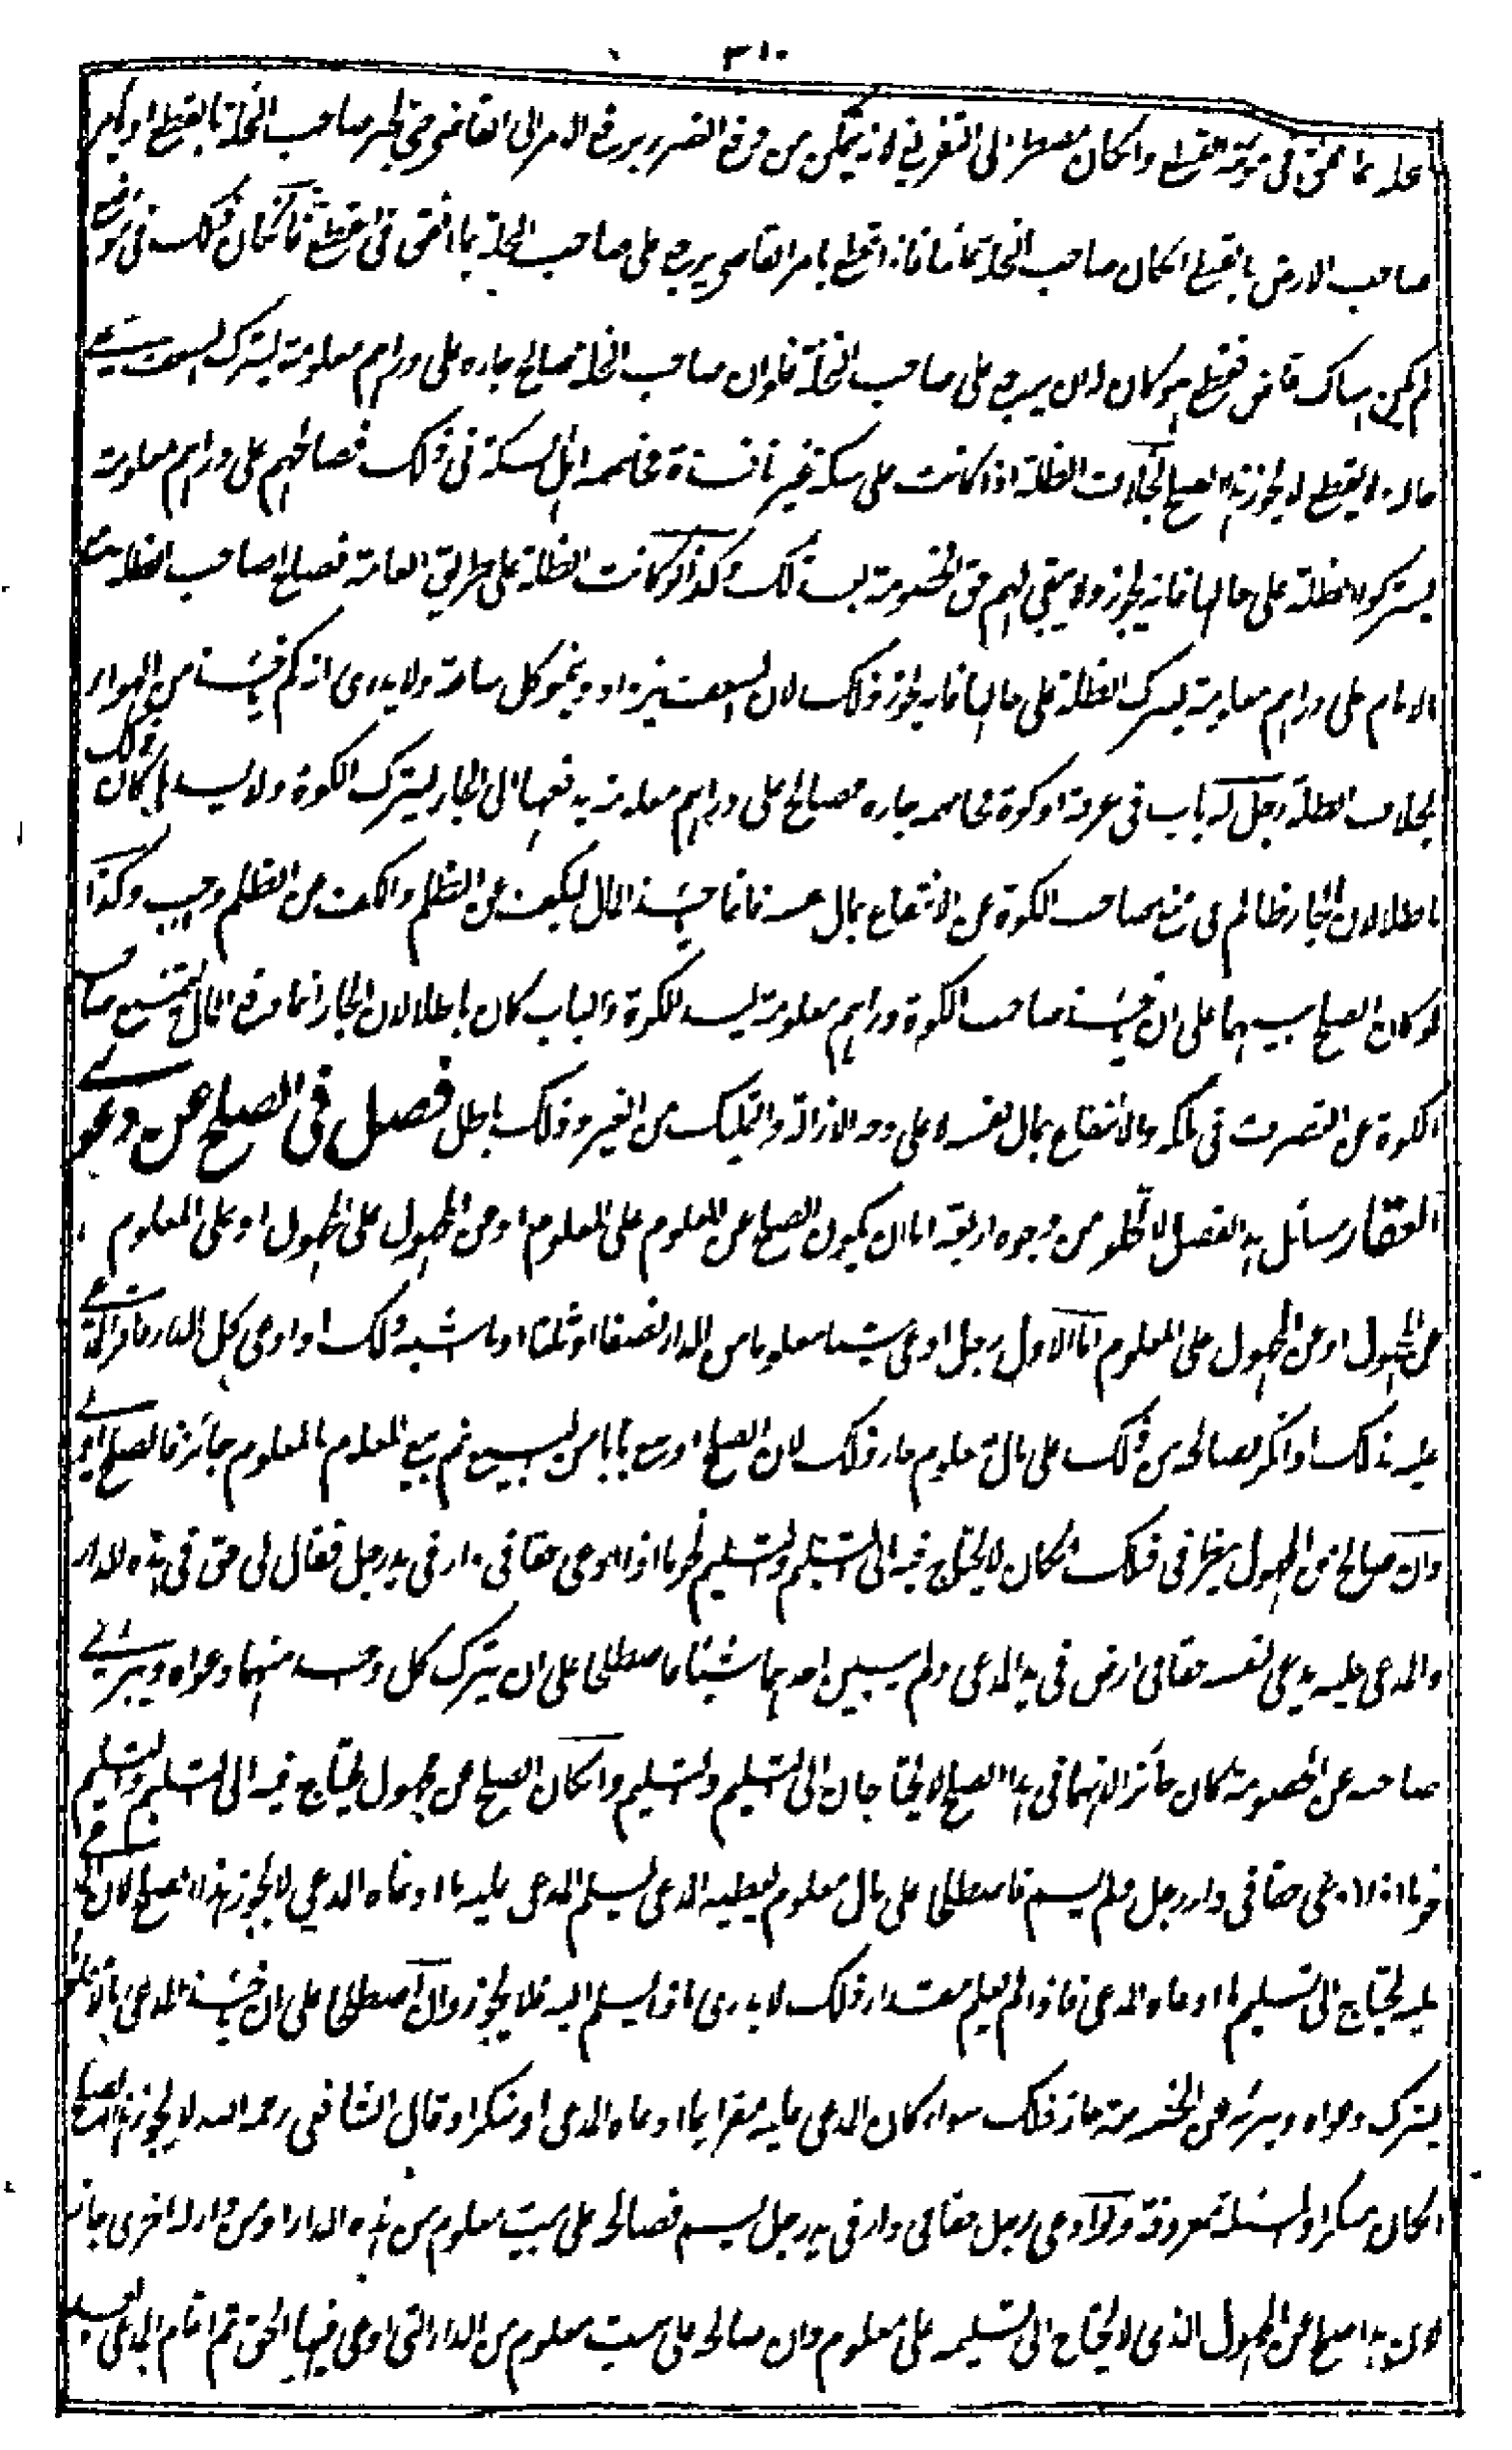 ٣١٠
عليه بما انفق فى مؤنة القطع وان كان مضطرا الى التفريغ لانه يتمكن من دفع الضرر برفع الامر الى القاضى حتى يجبر صاحب النخلة بالقطع او يامر
صاحب الارض بالقطع ان كان صاحب النخلة غائبا فانه اذا قطع بامر القاضى يرجع على صاحب النخلة بما انفق فى القطع فان كان ذلك فى موضع
لم يكن هناك قاض فقطع هو كان له ان يرجع على صاحب النخلة فلو ان صاحب النخلة صالح جاره على دراهم معلومة ليترك السعف
حاله ولا يقطع لا يجوز هذا الصلح بخلاف الظلة اذا كانت على سكة غير نافذة فخاصمه اهل السكة فى ذلك فصالحهم على دراهم معلومة
ليتركوا الظلة على حالها فانه يجوز ولا يبقى لهم حق الخصومة بعد ذلك وكذا لو كانت الظلة على طريق العامة فصالح صاحب الظلة مع
الامام على دراهم معلومة ليترك الظلة على حالها فانه يجوز ذلك لان السعف يزداد وينمو كل ساعة ولا يدرى انه كم ياخذ من الهواء
بخلاف الظلة رجل له باب فى غرفة او كوة فخاصمه جاره فصالح على دراهم معلومة يدفعها الى الجار ليترك الكوة ولا يسد كان ذلك
باطلا لان الجار ظالم فى منع صاحب الكوة عن الانتفاع بمال نفسه فانما ياخذ المال ليكف عن الظلم والكف عن الظلم واجب وكذا
لو كان الصلح بينهما على ان ياخذ صاحب الكوة دراهم معلومة ليسد الكوة والباب كان باطلا لان الجار انما دفع المال ليمتنع صاحب
الكوة عن التصرف فى ملكه والانتفاع بمال نفسه لا على وجه الازالة والتمليك من الغير وذلك باطل فصل فى الصلح عن دعوى
العقار مسائل هذا الفصل لا تخلو من وجوه اربعة اما ان يكون الصلح عن المعلوم على المعلوم او عن المجهول على المجهول او على المعلوم
عن المجهول او عن المجهول على المعلوم اما الاول رجل ادعى شيئا معلوما من الدار نصفا او ثلثا او ما اشبه ذلك او ادعى كل الدار فاقر المدعى
عليه بذلك او انكر فصالحه من ذلك على مال معلوم جاز ذلك لان الصلح اوسع بابا من البيع ثم بيع المعلوم بالمعلوم جائز فالصلح اولى
وان صالح عن المجهول ينظر فى ذلك ان كان لا يحتاج فيه الى التسليم والتسليم نحو ما اذا ادعى حقا فى دار فى يد رجل فقال لى حق فى هذه الدار
والمدعى عليه يدعى لنفسه حقا فى ارض فى يد المدعى ولم يبين احدهما شيئا فاصطلحا على ان يترك كل واحد منهما دعواه ويبرئ
صاحبه عن الخصومة كان جائزا لانهما فى هذا الصلح لا يحتاجان الى التسليم والتسليم وان كان الصلح عن مجهول يحتاج فيه الى التسليم والتسليم
نحو ما اذا ادعى حقا فى دار رجل ولم يسم فاصطلحا على مال معلوم يعطيه المدعى ليسلم المدعى عليه ما ادعاه المدعى لا يجوز هذا الصلح لان المدعى
عليه يحتاج الى تسليم ما ادعاه المدعى فاذا لم يعلم مقدار ذلك لا يدرى ماذا يسلم اليه فلا يجوز وان اصطلحا على ان ياخذ المدعى مالا
ليترك دعواه ويبرئه عن الخصومة جاز ذلك سواء كان المدعى عليه مقرا بما ادعاه المدعى او منكرا وقال الشافعى رحمه الله لا يجوز هذا الصلح
ان كان منكرا والمسئلة معروفة ولو ادعى رجل حقا فى دار فى يد رجل لم يسم فصالحه على بيت معلوم من هذه الدار او من دار له اخرى جاز
لان هذا صلح عن المجهول الذى لا يحتاج الى تسليمه على معلوم وان صالحه على بيت معلوم من الدار التى ادعى فيها الحق ثم اقام المدعى